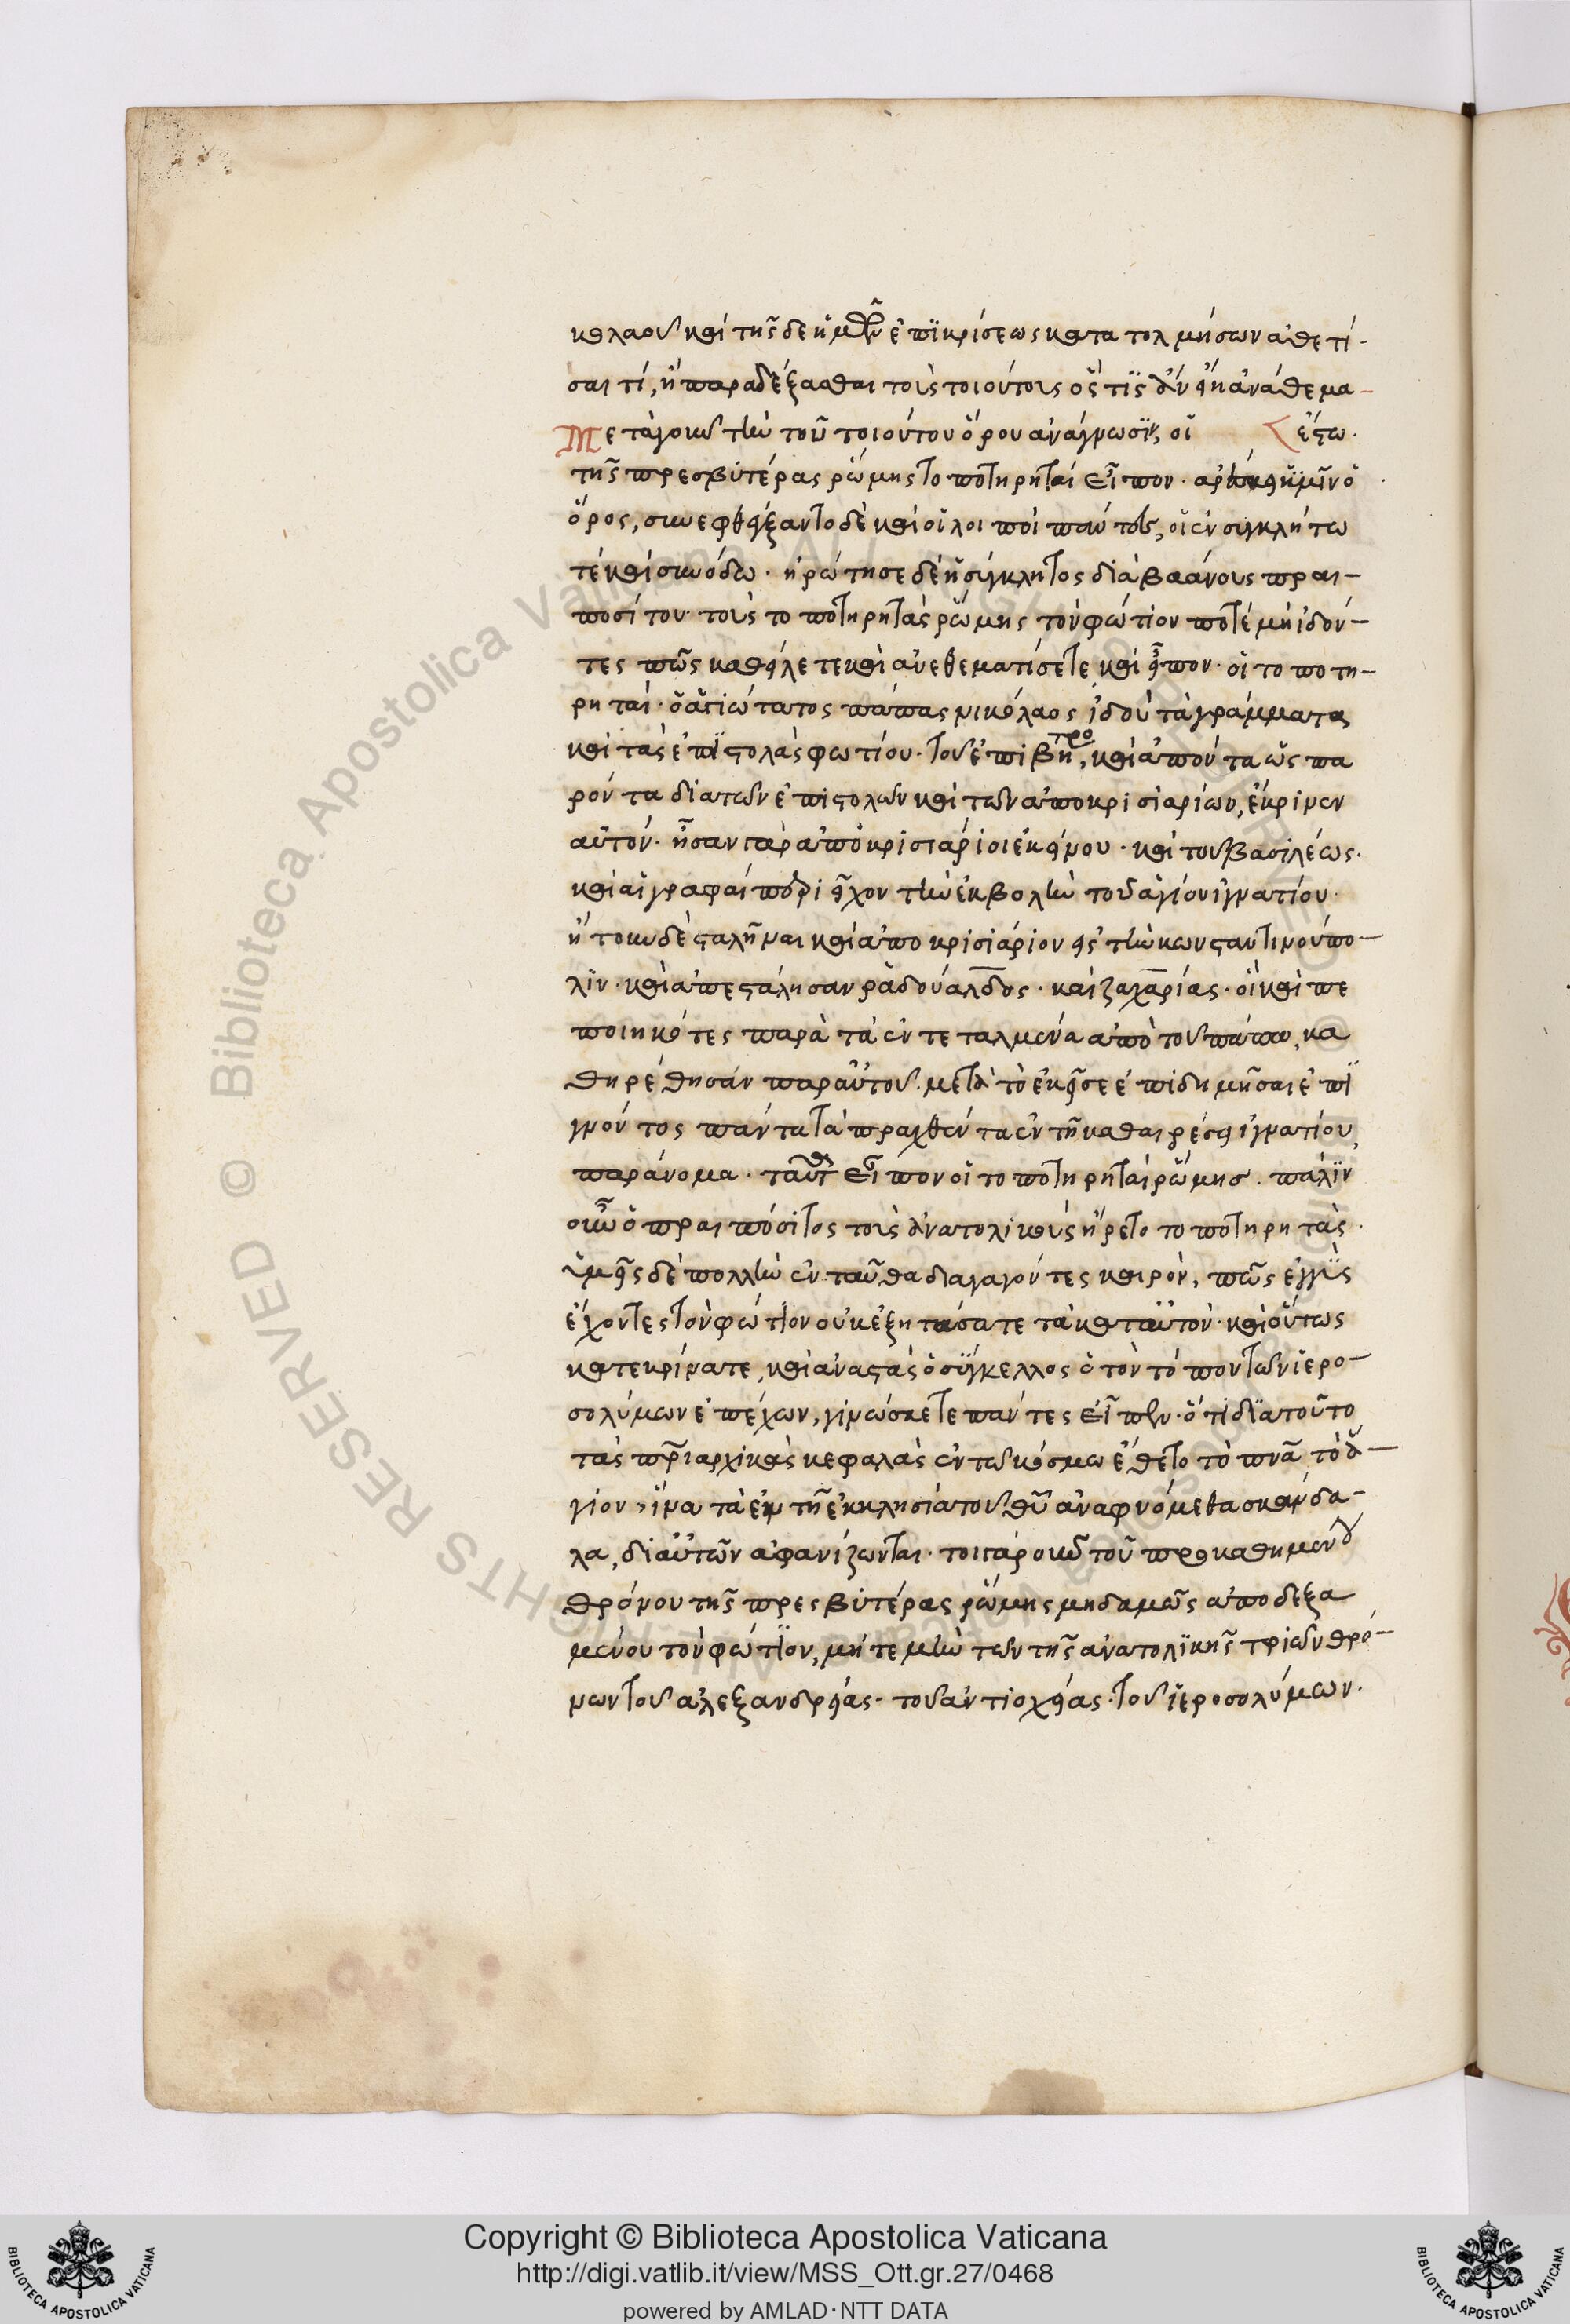 κολαου καὶ τῆσδε ἡμῶν ἐπϊκρίσεως κατατολμήσων ἀθετί-
σαι τί, ἢ παραδέξασθαι τοὺς τοιούτους ὅς τϊς ἂν εἴη ἀνάθεμα
Μετὰ γοῦν τὴν τοῦ τοιούτου ὅρου ἀνάγνωσϊν, οἱ ἔστω.
τῆς πρεσβυτέρας ῥώμης τοποτηρηταί εἶπον. ἀρκεῖ ἡμῖν ὁ
ὅρος, συνεφθέγξαντο δὲ καὶ οἱ λοιποὶ πάντες, οἱ ἐν συγκλήτω
τέ καὶ συνόδω. ἠρώτησε δὲ ἡ σύγκλητος διὰ βαάνους πραι-
ποσίτου τοὺς τοποτηρητὰς ῥώμης τὸν φώτιον ποτέ μὴ ἰδόν-
τες πῶς καθείλετε καὶ ἀνεθεματίσετε καὶ εἶπον. οἱ τοποτη-
ρηταί. ὁ ἁγιώτατος πάπας νικόλαος ἰδοὺ τὰ γράμματα
καὶ τὰς ἐπϊστολὰς φωτίου. τοῦ ἐπιβήτρο, καὶ ἀπόντα ὡς πα
ρόντα διὰ τῶν ἐπιστολῶν καὶ τῶν ἀποκρισιαρίων, ἔκρινεν
αὐτόν. ἦσαν γὰρ ἀποκρισιάριοι ἐκείνου. καὶ τοῦ βασιλέως.
καὶ αἱ γραφαὶ περιεῖχον τὴν ἐκβολὴν τοῦ ἁγίου ἰγνατίου.
ἤτουν δὲ σταλῆναι καὶ ἀποκρισιάριον εἰς τὴν κωνσταντινούπο-
λϊν. καὶ ἀπεστάλησαν ῥαδούαλδος. καὶ ζαχαρίας. οἳ καὶ πε
ποιηκότες παρὰ τὰ ἐντεταλμένα ἀπὸ τοῦ πάπα, κα
θηρέθησάν παρ αὐτοῦ. μετὰ τὸ ἐκεῖσε ἐπιδημῆσαι ἐπϊ
γνόντος πάντα τὰ πραχθέντα ἐν τῆ καθαιρέσει ἰγνατίου,
παράνομα. ταῦτα εἶπον οἱ τοποτηρηταὶ ῥώμης. πάλϊν
οὖν ὁ πραιπόσιτος τοὺς ἀνατολικοὺς ἤρετο τοποτηρητάς.
ὑμεῖς δὲ πολλὺν ἐνταῦθα διαγαγόντες καιρὸν, πῶς ἐγγὺς
ἔχοντες τὸν φώτιον οὐκ ἐξητάσατε τὰ κατ αὐτόν. καὶ οὕτως
κατεκρίνατε, καὶ ἀναστὰς ὁ σύγκελλος ὁ τὸν τόπον τῶν ἱερο-
σολύμων ἐπέχων, γινώσκετε πάντες εἶπεν. ὅτι δϊὰ τοῦτο
τὰς πριαρχικὰς κεφαλὰς ἐν τῶ κόσμω ἔθετο τὸ πνα τὸ ἅ-
γιον, ἵνα τὰ ἐν τῆ ἐκκλησία τοῦ θυ ἀναφυόμεθα σκάνδα-
λα, δι αὐτῶν ἀφανίζωνται. τοιγάρουν τοῦ προκαθημένου
θρόνου τῆς πρεςβυτέρας ῥώμης μηδαμῶς ἀποδεξα
μένου τὸν φώτϊον, μήτε μὴν τῶν τῆς ἀνατολϊκῆς τριῶν θρό-
νων τοῦ ἀλεξανδρείας. τοῦ ἀντιοχείας. τοῦ ἱεροσολύμων.
Biblioteca Apostolica Vaticana
ALL RIGHTS RESERVED ©
Copyright © Biblioteca Apostolica Vaticana
http://digi.vatlib.it/view/MSS_Ott.gr.27/0468
powered by AMLAD·NTT DATA
BIBLIOTECA APOSTOLICA VATICANA
BIBLIOTECA APOSTOLICA VATICANA